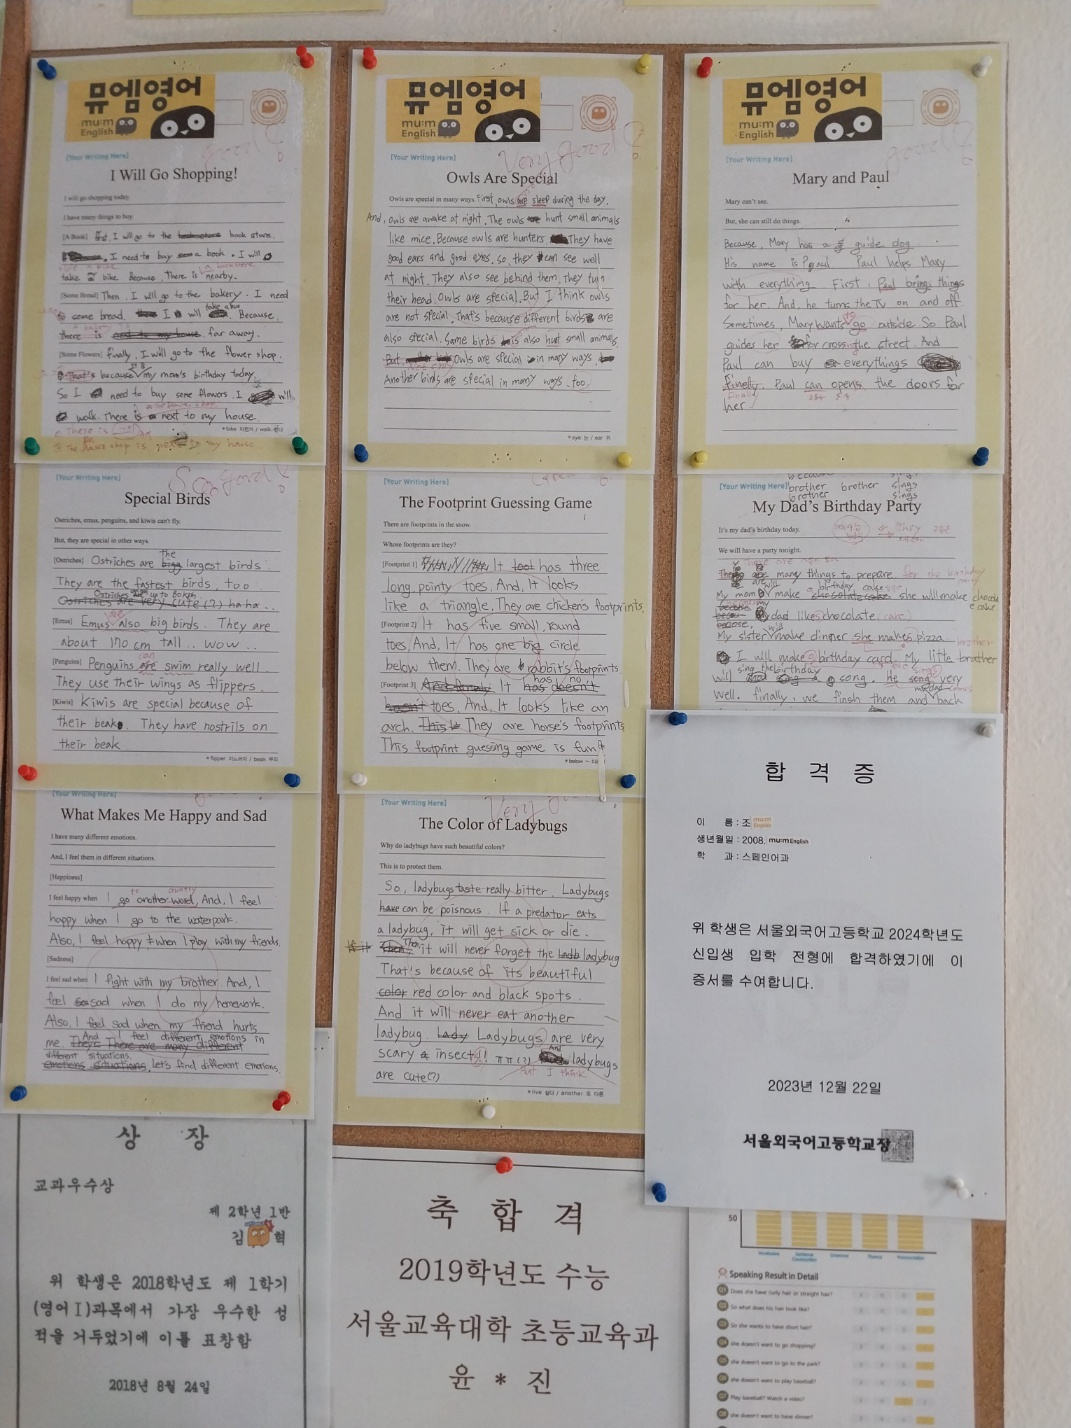 뮤엠영어
mu:m
English
[Your Writing Here]
good
I Will Go Shopping!
I will go shopping today.
I have many things to buy.
[A Book] first, I will go to the book store.
I need to buy a book. I will
take a bike Because, There is nearby.
[Some Bread] Then, I will go to the bakery. I need
some bread. I will take a bus Because,
there is far away.
[Some Flowers] finally, I will go to the flower shop.
That's because my mom's birthday today.
So I need to buy some flowers. I will
walk. There is next to my house.
뮤엠영어
mu:m
English
[Your Writing Here]
Very good
Owls Are Special
Owls are special in many ways. First owls are sleep during the day.
And, owls are awake at night. The owls hunt small animals
like mice. Because owls are hunters They have
good ears and good eyes, so they can see well
at night. They also see behind them, They turn
their head. Owls are special. But I think owls
are not special. That's because different birds are
also special. Some birds is also hunt small animals.
Owls are special in many ways.
Another birds are special in many ways. too.
*eye 눈 / ear 귀
뮤엠영어
mu:m
English
[Your Writing Here]
good
Mary and Paul
Mary can't see.
But, she can still do things.
Because, Mary has a guide dog.
His name is Paul Paul helps Mary
with everything. First, Paul brings things
for her. And, he turns the TV on and off.
Sometimes, Mary wants to go outside So Paul
guides her for crossing the street. And
Paul can buy everythings
finally, Paul can opens the doors for
her.
[Your Writing Here]
So good
Special Birds
Ostriches, emus, penguins, and kiwis can't fly.
But, they are special in other ways.
[Ostriches] Ostriches are the largest birds.
They are the fastest birds, too
Ostriches are very cute(?) haha..
[Emus] Emus also big birds. They are
about 170 cm tall.. wow..
[Penguins] Penguins are swim really well
They use their wings as flippers.
[Kiwis] Kiwis are special because of
their beak. They have nostrils on
their beak
[Your Writing Here]
The Footprint Guessing Game
There are footprints in the snow.
Whose footprints are they?
[Footprint 1] It foot has three
long pointy toes. And, It looks
like a triangle. They are chickens footprints.
[Footprint 2] It has five small, round
toes, And, It has one big circle
below them. They are rabbit's footprints
[Footprint 3] And finally It has doesn't has no
toes, And, It looks like an
arch. This is They are horse's footprints
This footprint guessing game is fun!
[Your Writing Here]
brother brother sings
brother sings
My Dad's Birthday Party
It's my dad's birthday today.
We will have a party tonight.
many things to prepare. for the birthday
My mom will make chocolate cake she will make chocolate cake
because, my dad likes chocolate.
My sister will make dinner she makes pizza
I will make birthday card. My little brother
will song. He song very
well. finally, we finsh them and
[Your Writing Here]
What Makes Me Happy and Sad
I have many different emotions.
And, I feel them in different situations.
[Happiness]
I feel happy when I go to another country And, I feel
happy when I go to the waterpark.
Also, I feel happy when I play with my friends.
[Sadness]
I feel sad when I fight with my brother. And, I
feel sad when I do my homework.
Also, I feel sad when my friend hurts
me. And I feel different emotions in
different situations. let's find different emotions.
[Your Writing Here]
Very
The Color of Ladybugs
Why do ladybugs have such beautiful colors?
This is to protect them.
So, ladybugs taste really bitter. Ladybugs
have can be poisnous. If a predator eats
a ladybug, it will get sick or die.
Then, it will never forget the ladybug
That's because of its beautiful
color red color and black spots.
And it will never eat another
ladybug. Lady Ladybugs are very
scary insects! ㅠㅠ(?) And ladybugs
but I think
are cute(?)
*live 살다 / another 또 다른
합 격 증
이 름 : 조
생년월일 : 2008. mu:m English
학 과 : 스페인어과
위 학생은 서울외국어고등학교 2024학년도
신입생 입학 전형에 합격하였기에 이
증서를 수여합니다.
2023년 12월 22일
서울외국어고등학교장
상 장
교과우수상
제 2학년 1반
김 혁
위 학생은 2018학년도 제 1학기
(영어Ⅰ)과목에서 가장 우수한 성
적을 거두었기에 이를 표창함
2018년 8월 24일
축 합 격
2019학년도 수능
서울교육대학 초등교육과
윤 * 진
50
Speaking Result in Detail
Does she have curly hair or straight hair?
So what does his hair look like?
So she wants to have short hair?
she doesn't want to go shopping?
she doesn't want to go to the park?
she doesn't want to play baseball?
Play baseball? Watch a video?
she doesn't want to have dinner?